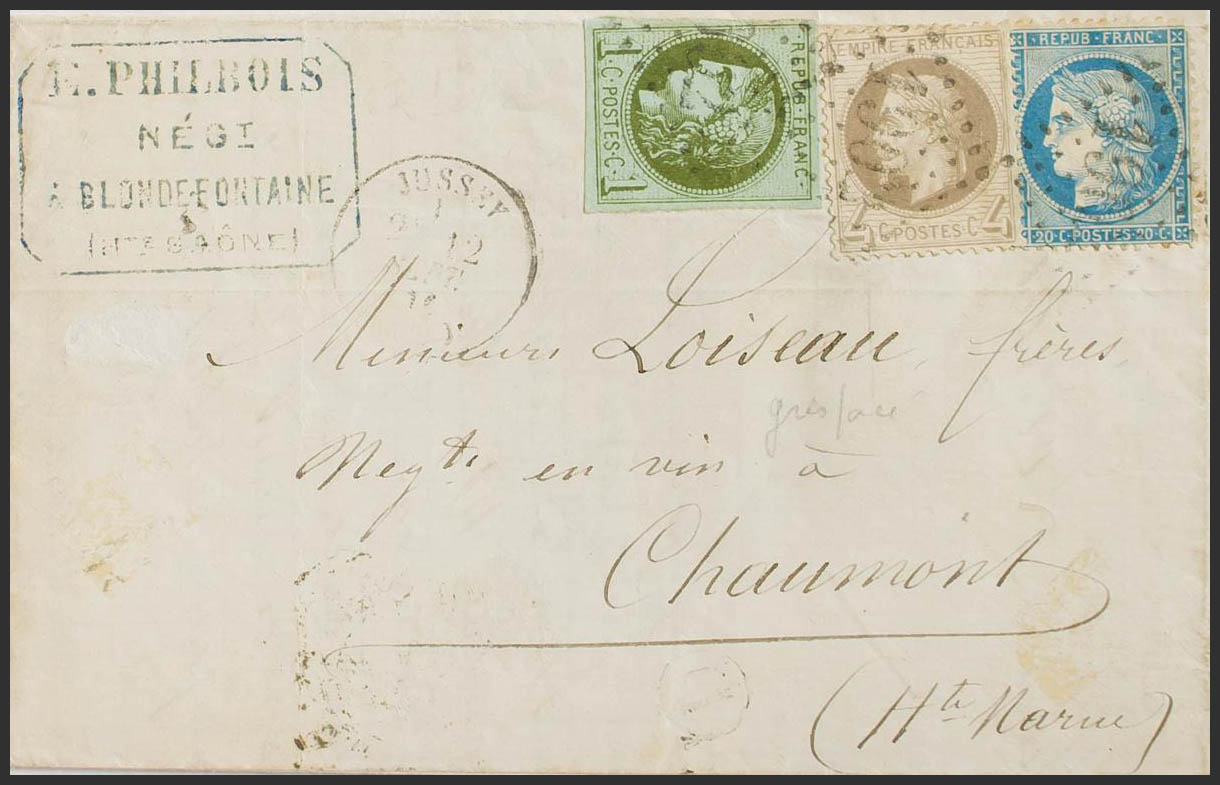 E. PHILBOIS
NÉGT
À BLONDEFONTAINE
(HTE SAÔNE)
JUSSEY
12
1·C·POSTES·C·1
REPUB·FRANC·
EMPIRE FRANÇAIS
4 C·POSTES·C 4
·REPUB·FRANC·
20·C·POSTES·20·C·
Messieurs Loiseau frères
Negts en vin à
Chaumont
(Hte Marne)